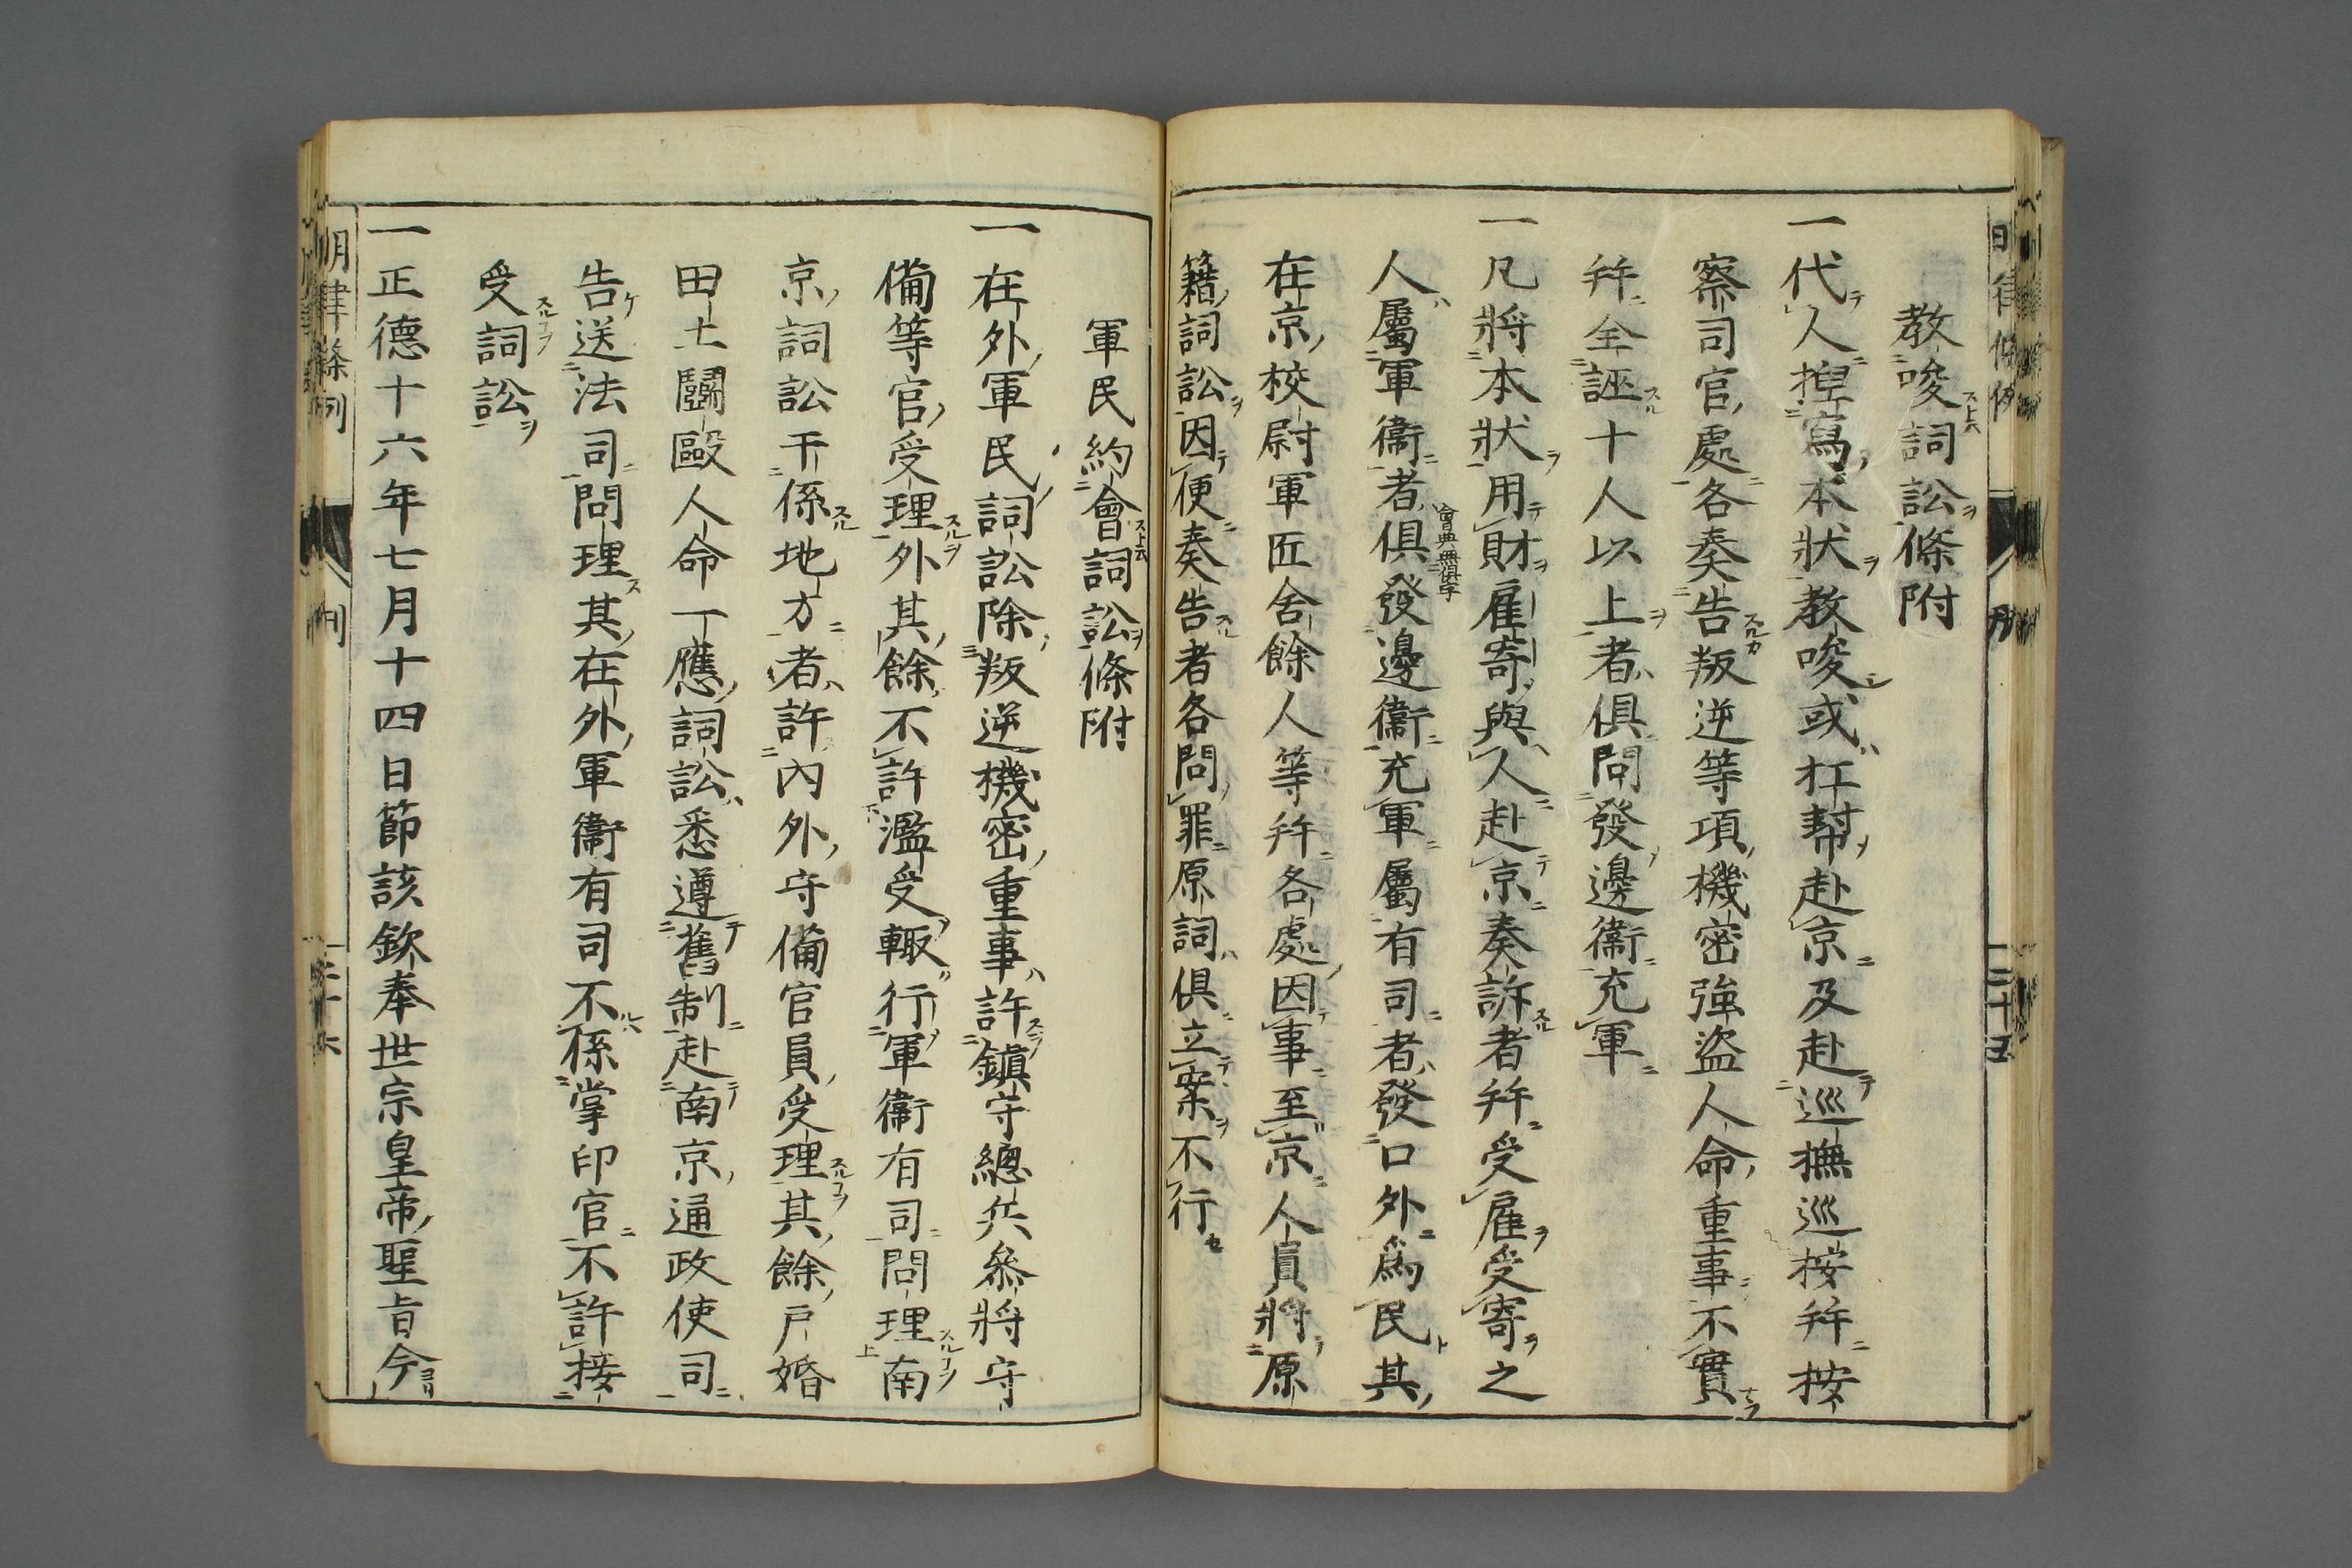 教唆詞訟條附
一代人揑寫本狀教唆或扛幫赴京及赴巡撫巡按幷按
察司官處各奏告叛逆等項機密強盜人命重事不實
幷全誣十人以上者俱問發邊衞充軍
一凡將本狀用財雇寄與人赴京奏訴者幷受雇受寄之
人屬軍衞者俱發邊衞充軍屬有司者發口外爲民其
會典無俱字
在京校尉軍匠舍餘人等幷各處因事至京人員將原
籍詞訟因便奏告者各問罪原詞俱立案不行
軍民約會詞訟條附
一在外軍民詞訟除叛逆機密重事許鎭守總兵叅將守
備等官受理外其餘不許濫受輙行軍衞有司問理南
京詞訟干係地方者許內外守備官員受理其餘戶婚
田土鬭毆人命一應詞訟悉遵舊制赴南京通政使司
告送法司問理其在外軍衞有司不係掌印官不許接
受詞訟
一正德十六年七月十四日節該欽奉世宗皇帝聖旨今
明律條例